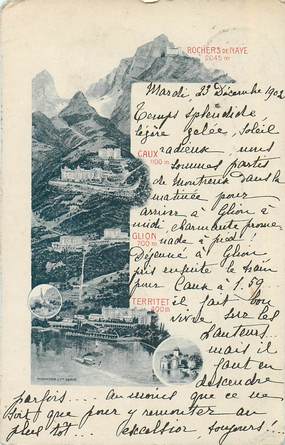 ROCHERS DE NAYE
2045 m
Mardi, 23 Décembre 1902
Temps splendide
légère gelée, soleil
radieux nous
CAUX
1100 m
sommes partis
de Montreux dans la
matinée pour
arriver à Glion à
midi, charmante prome-
GLION
700 m
nade à pied!
Déjeuné à Glion
puis ensuite le train
pour Caux à 1.59
TERRITET
400 m
il fait bon
vivre sur les
hauteurs...
mais il
faut en
descendre
parfois... au moins que ce ne
soit que pour y remonter au
plus tôt... excelsior toujours!